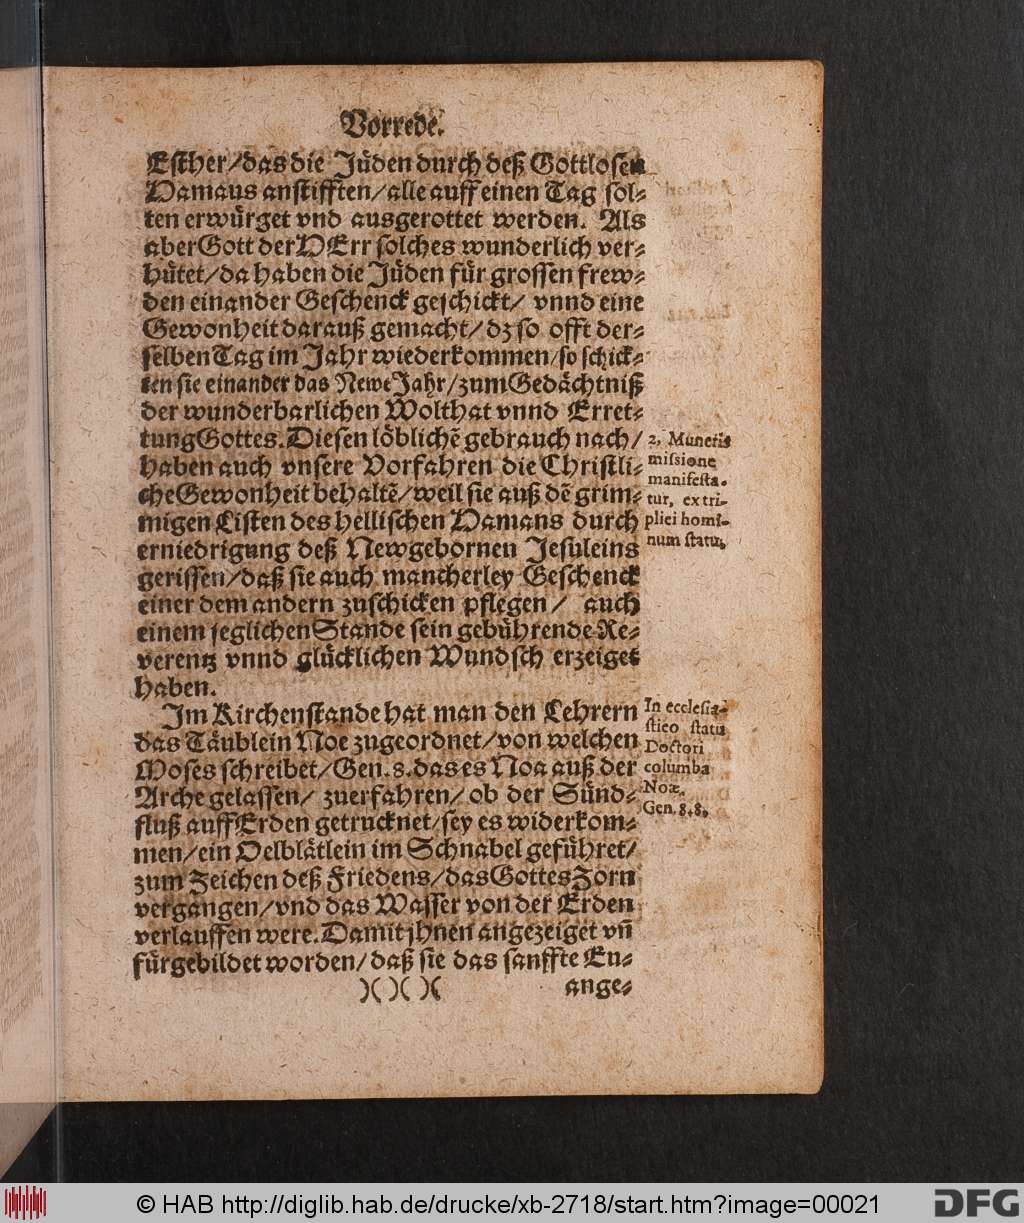 Vorrede.
Esther/das die Jüden durch deß Gottlosen
Hamaus anstifften/alle auff einen Tag sol-
ten erwürget vnd ausgerottet werden. Als
aber Gott der HErr solches wunderlich ver-
hütet/da haben die Jüden für grossen frew-
den einander Geschenck geschickt/ vnnd eine
Gewonheit darauß gemacht/dz so offt der-
selben Tag im Jahr wiederkommen/so schick-
ten sie einander das Newe Jahr/zum Gedächtniß
der wunderbarlichen Wolthat vnnd Erret-
tung Gottes. Diesen löblichẽ gebrauch nach/
haben auch vnsere Vorfahren die Christli-
che Gewonheit behaltẽ/weil sie auß dẽ grim-
migen Listen des hellischen Hamans durch
erniedrigung deß Newgebornen Jesuleins
gerissen/daß sie auch mancherley Geschenck
einer dem andern zuschicken pflegen/ auch
einem jeglichen Stande sein gebührende Re-
verentz vnnd glücklichen Wundsch erzeiget
haben.
2. Muneris
missione
manifesta-
tur, ex tri-
plici homi-
num statu,
Im Kirchenstande hat man den Lehrern
das Täublein Noe zugeordnet/von welchen
Moses schreibet/Gen. 8. das es Noa auß der
Arche gelassen/ zuerfahren/ ob der Sünd-
fluß auff Erden getrucknet/sey es widerkom-
men/ein Oelblätlein im Schnabel geführet/
zum Zeichen deß Friedens/das Gottes Zorn
vergangen/vnd das Wasser von der Erden
verlauffen were. Damit jhnen angezeiget vñ
fürgebildet worden/daß sie das sanffte Eu-
In ecclesia-
stico statu
Doctori
columba
Noæ.
Gen. 8. 8.
)( )( )( ange-
© HAB http://diglib.hab.de/drucke/xb-2718/start.htm?image=00021
DFG